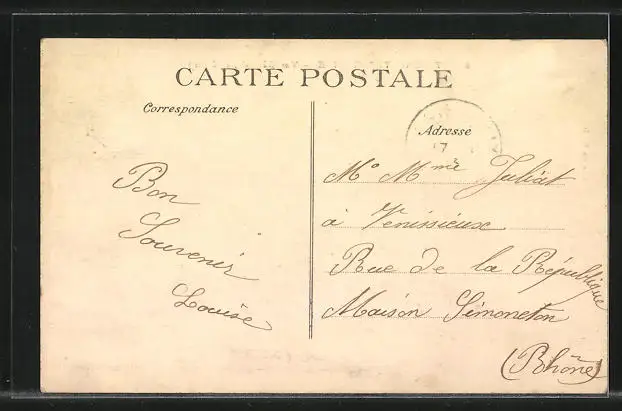 CARTE POSTALE
Correspondance
Adresse
Bon
Souvenir
Louise
Mr Mme Juliat
à Venissieux
Rue de la République
Maison Simoneton
(Rhône)